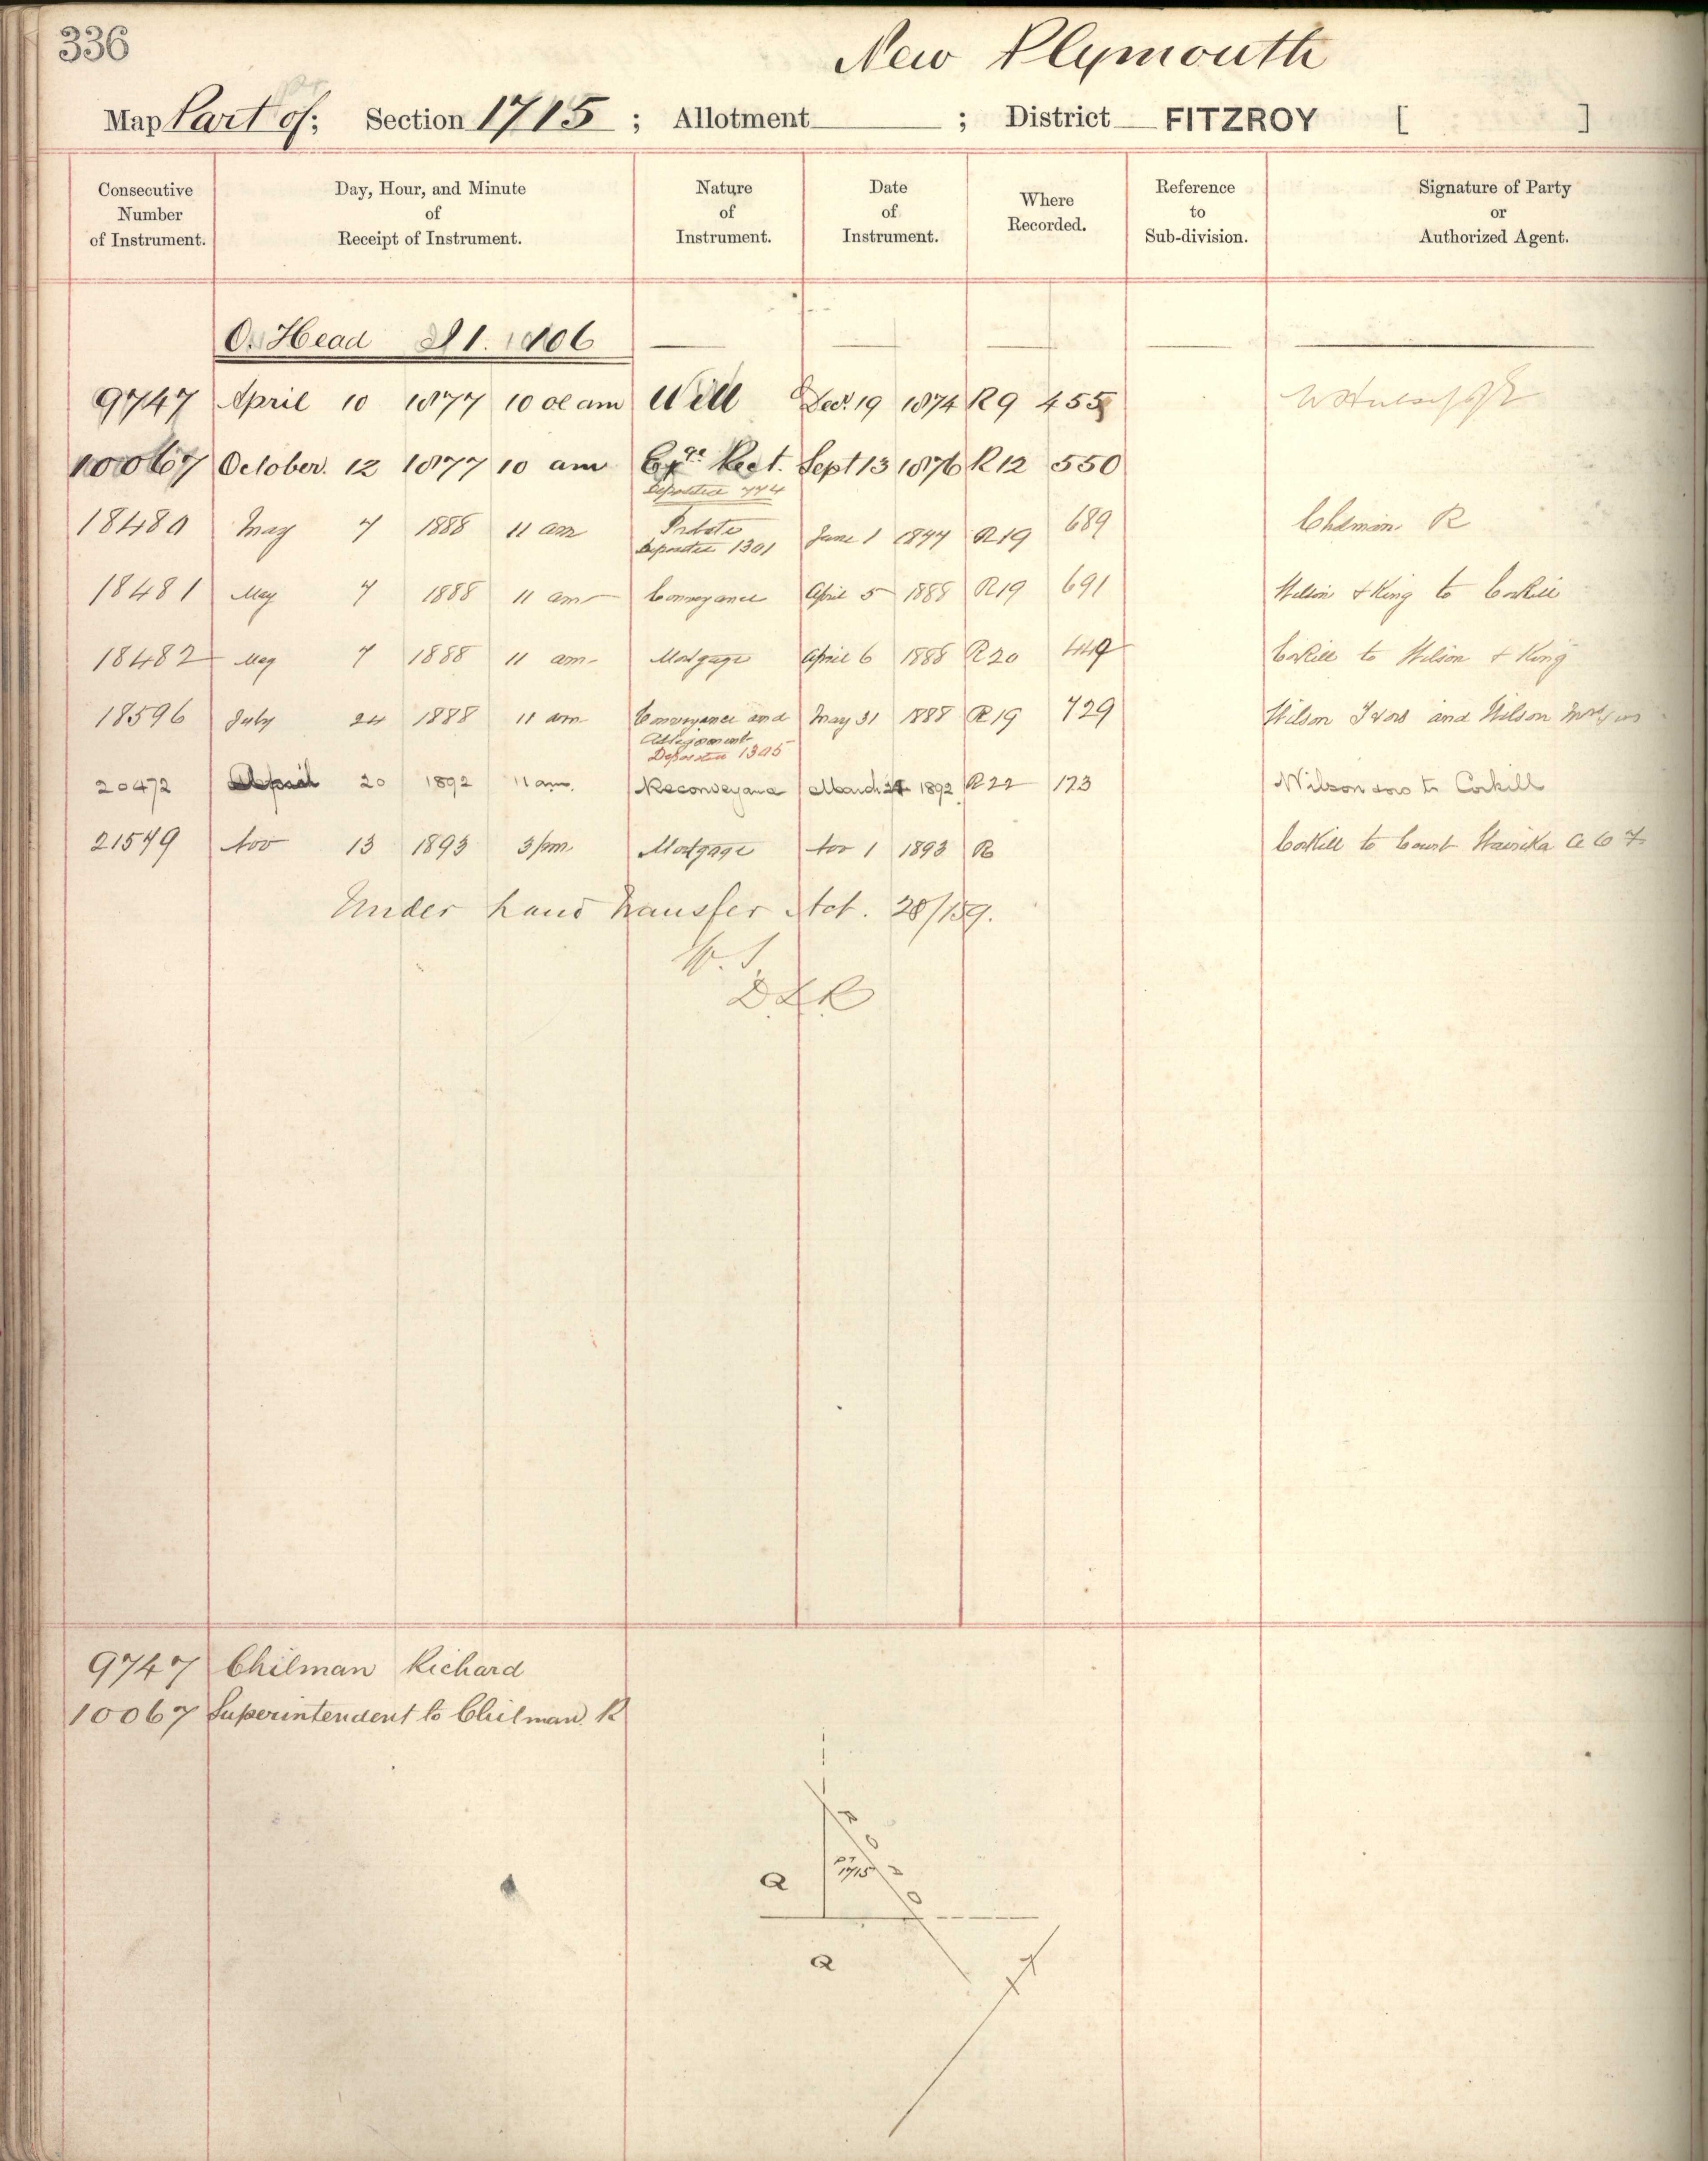 336
New Plymouth
Map Part of; Section 1715 ; Allotment ; District FITZROY [ ]
Consecutive Number of Instrument.
Day, Hour, and Minute of Receipt of Instrument.
Nature of Instrument.
Date of Instrument.
Where Recorded.
Reference to Sub-division.
Signature of Party or Authorized Agent.
O. Head
9747 April 10 1877 10 am Will Decr. 19 1874 R9 455
10067 October. 12 1877 10 am Sept 13 1876 R12 550
Deposited 774
18480 May 7 1888 11 am Probate June 1 R19 689 Chilman. R
Deposited 1301
18481 May 7 1888 11 am Conveyance April 5 1888 R19 691 Wilson & King to Corkill
18482 May 7 1888 11 am Mortgage April 6 1888 R20 449 Corkill to Wilson & King
18596 July 24 1888 11 am Conveyance and May 31 1888 R19 729 Wilson and Wilson
Assignment
Deposited 1305
20472 April 20 1892 11 am. Reconveyance March 1892 R22 173 Wilson to Corkill
21549 Nov 13 1893 3 pm Mortgage Nov 1 1893 R Corkill to Court
Under Land Transfer Act. 28/159.
D.L.R
9747 Chilman Richard
10067 Superintendent to Chilman. R
R O A D
pt 1715
a
a